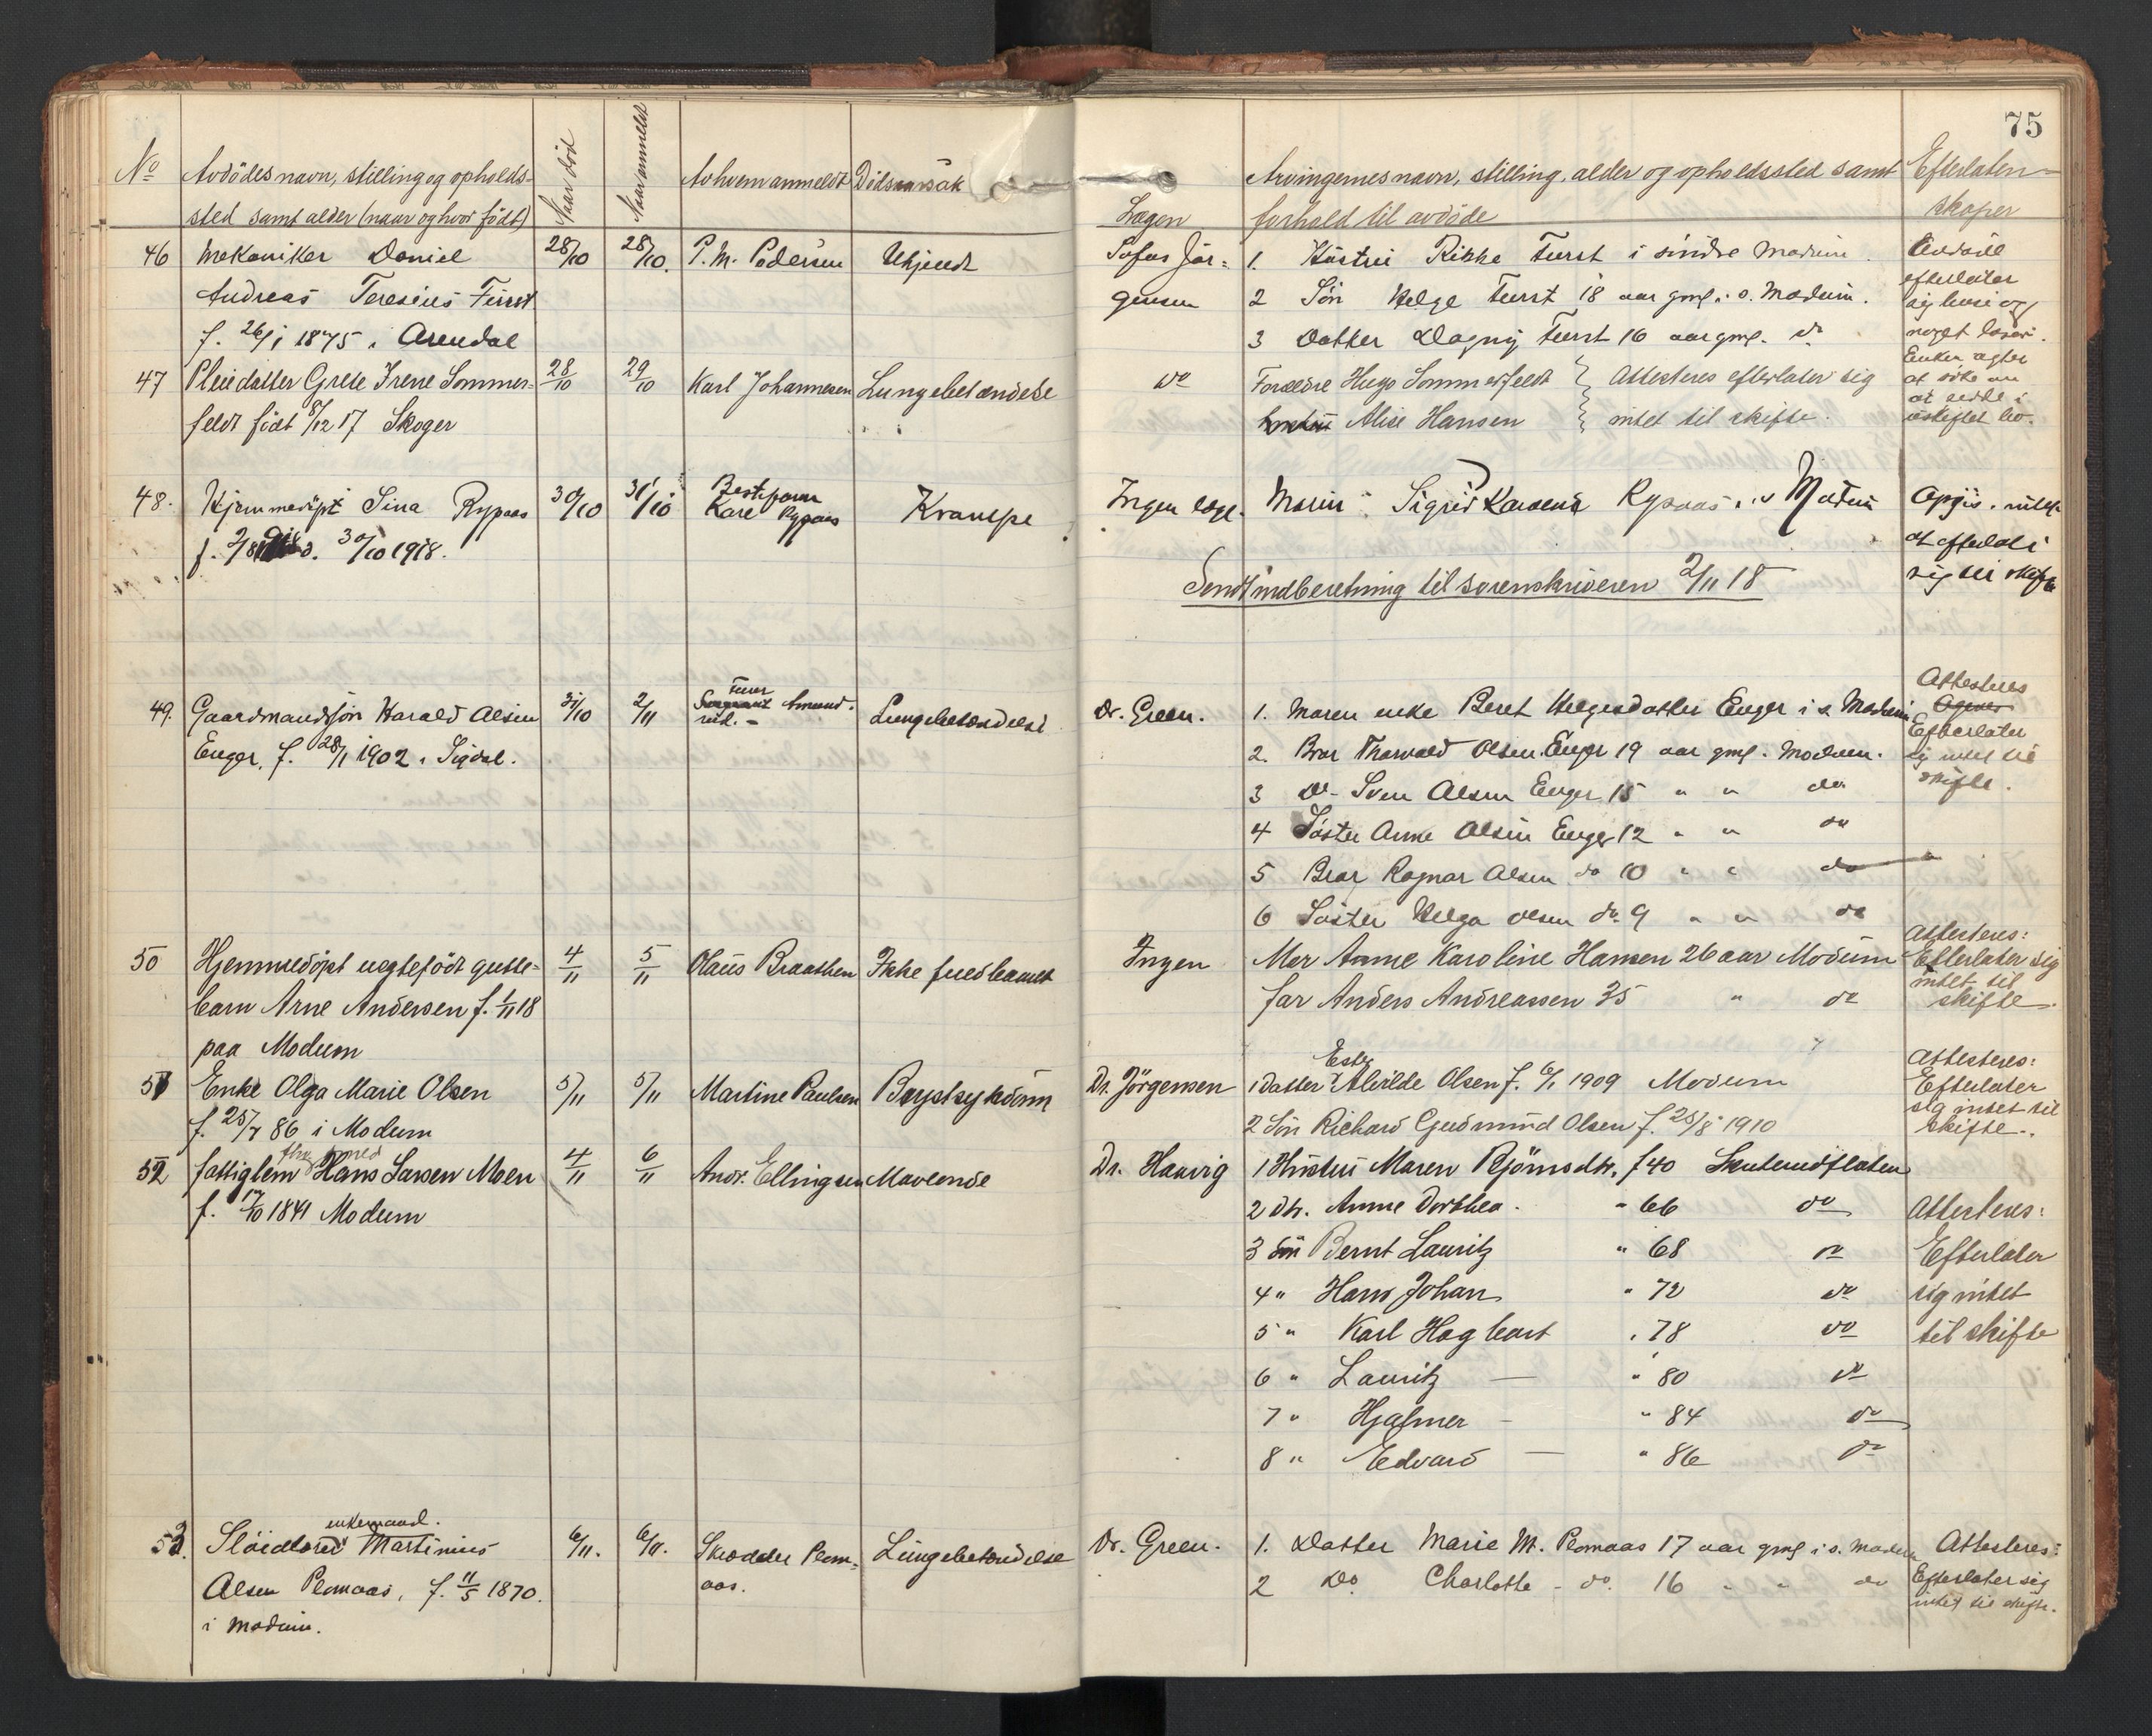 75
No Avdödes navn, stilling og opholds- Naar död Naar anmeldt Av hvem anmeldt Dödsaarsak Lægen Arvingernes navn, stilling, alder og opholdssted samt Efterlaten-
sted samt alder (naar og hvor födt) forhold til avdöde skaper
46 Mekaniker Daniel 28/10 28/10. P. M. Pedersen Ukjendt Sofus Jör- 1. Hustru Rikke Furst i söndre Modum.
Andreas Teresius Fürst gensen 2 Sön Helge Furst 18 aar gml. i s. Modum.
f. 26/1 1875 i Arendal 3 Datter Dagny Furst 16 aar gml. do
efterlater
sig hus og
noget lösöre.
Enken agter
at söke om
at sidde i
uskiftet bo.
47 Pleiedatter Grete Irene Sommer- 28/10 29/10 Karl Johannesen Lungebetændelse do Forældre Hugo Sommerfeldt } Attesteres efterlater sig
feldt födt 8/12 17 Skoger Alise Hansen } intet til skifte.
48. Hjemmedöpt Sina Rypaas 30/10 31/10 Bestefar Kare Rypaas Krampe Ingen læge. Moren: Sigrid Rypaas i s Modum Opgis. intet
f. 2/8 1918 d. 30/10 1918. at efterlate
sig til skifte
Sendt indberetning til sorenskriveren 2/11 18
49. Gaardmandssön Harald Olsen 31/10 2/11 Furer Amund- rud. - Lungebetændelse Dr. Green. 1. Moren enke Beret Helgesdatter Enger i s. Modum Attesteres
Enger, f. 28/1 1902 i Sigdal. 2. Bror Thorvald Olsen Enger 19 aar gml. Modum. Efterlater
3 Do- Sven Olsen Enger 15 " " do sig intet til
4 Söster Anne Olsen Enger 12 " " do skifte.
5 Bror Ragnar Olsen do 10 " " do
6 Söster Helga Olsen do. 9 " " do
50 Hjemmedöpt uegtefödt gutte- 4/11 5/11 Olaus Braathen Ikke fuldbaaret Ingen Mor Anne Karoline Hansen 26 aar Modum Attesteres: Efterlater sig
barn Arne Andersen f. 1/11 18 far Anders Andreassen 35 " do intet til skifte.
paa Modum
51 Enke Olga Marie Olsen 5/11 5/11 Martine Paulsen Brystsykdom Dr. Jörgensen 1 Datter Alvilde Olsen f. 6/1 1909 Modum Attesteres: Efterlater
f. 25/7 86 i Modum 2 Sön Richard Gudmund Olsen f. 25/8 1910 sig intet til skifte.
52 fattiglem Hans Larsen Moen 4/11 6/11 Andr. Ellingsen Mavelende Dr. Hanvig 1 Hustru Maren Björnsdtr. f 40
f. 17/10 1841 Modum 2 Dtr. Anne Dorthea. " 66 do Attesteres:
3 Sön Bernt Lauritz " 68 do Efterlater
4 " Hans Johan " 72 do sig intet
5 " Karl Hagbart " 78 do til skifte
6 " Lauritz — " 80 do
7 " Hjalmer - " 84 do
8 " Edvard — " 86 do
53. enkemand. Martinius 6/11. 6/11. Skrædder Plom- Lungebetændelse Dr. Green. 1. Datter Marie M. Plomaas 17 aar gml i s. Modum Attesteres:
Olsen Plomaas, f. 11/5 1870. aas. 2 Do. Charlotte - do. 16 " " do Efterlater sig
i Modum. intet til skifte.